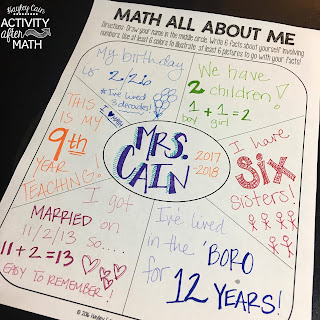 Hayley Cain
ACTIVITY
after
MATH
MATH ALL ABOUT ME
Directions: Draw your name in the middle circle. Write 6 facts about yourself involving
numbers. Use at least 6 colors to illustrate at least 6 pictures to go with your facts!
My birthday
is 2/26
#I've lived
3 decades!
I ♥ MATH
We have
2 children!
1 + 1 = 2
boy girl
THIS
IS MY
9th
YEAR
TEACHING!
MRS.
CAIN
2017
-2018
I have
six
sisters!
I got
MARRIED on
11/2/13 so....
11+2=13
EASY TO REMEMBER!
I've lived
in the 'BORO
for
12 YEARS!
© 2016 Hayley Cain